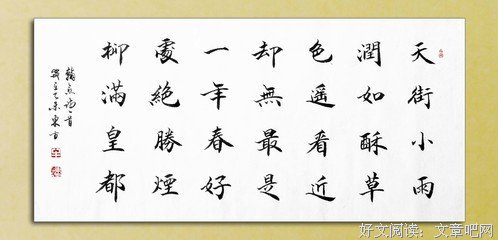 天街小雨
潤如酥草
色遥看近
却無最是
一年春好
處絶勝煙
柳滿皇都
韓愈詩首
乙未東方
好文阅读：文章吧网